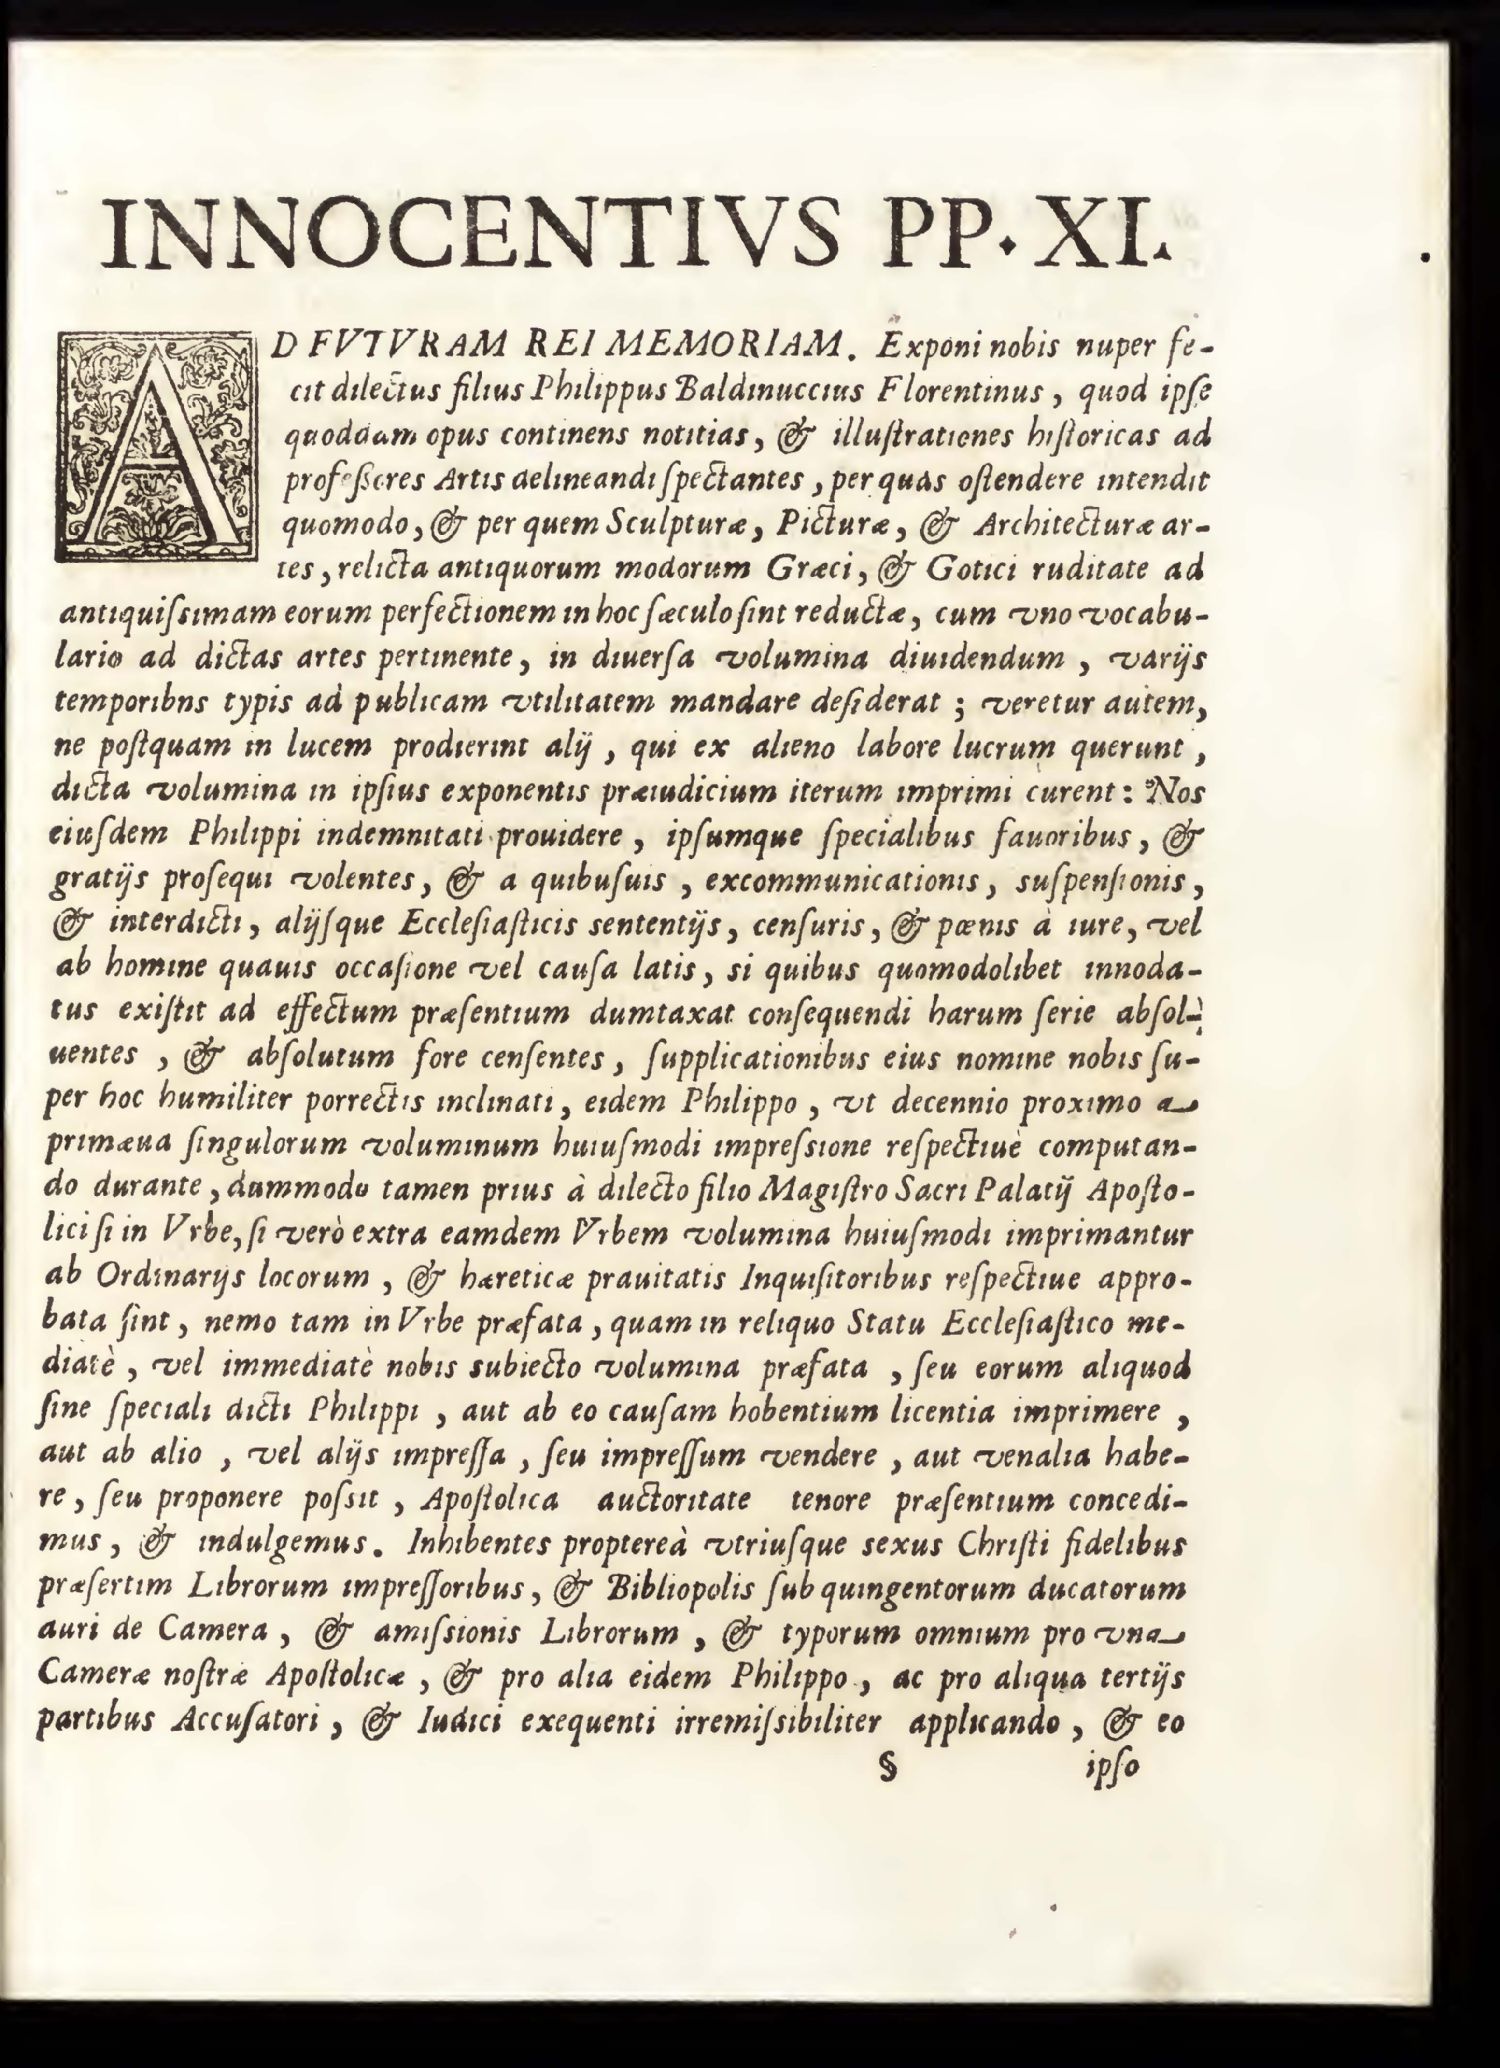 INNOCENTIVS PP. XI.
AD FVTVRAM REI MEMORIAM. Exponi nobis nuper fe-
cit dilectus filius Philippus Baldinuccius Florentinus, quod ipſe
quoddam opus continens notitias, & illuſtrationes hiſtoricas ad
profeſſores Artis delineandi ſpectantes, per quas oſtendere intendit
quomodo, & per quem Sculpturæ, Picturæ, & Architecturæ ar-
tes, relicta antiquorum modorum Græci, & Gotici ruditate ad
antiquiſsimam eorum perfectionem in hoc ſæculo ſint reductæ, cum vno vocabu-
lario ad dictas artes pertinente, in diuerſa volumina diuidendum, varijs
temporibns typis ad publicam vtilitatem mandare deſiderat; veretur autem,
ne poſtquam in lucem prodierint alij, qui ex alieno labore lucrum querunt,
dicta volumina in ipſius exponentis præiudicium iterum imprimi curent: Nos
eiuſdem Philippi indemnitati prouidere, ipſumque ſpecialibus fauoribus, &
gratijs proſequi volentes, & a quibuſuis, excommunicationis, ſuſpenſionis,
& interdicti, alijſque Eccleſiaſticis sententijs, cenſuris, & pœnis à iure, vel
ab homine quauis occaſione vel cauſa latis, si quibus quomodolibet innoda-
tus exiſtit ad effectum præſentium dumtaxat conſequendi harum ſerie abſol-
uentes, & abſolutum fore cenſentes, ſupplicationibus eius nomine nobis ſu-
per hoc humiliter porrectis inclinati, eidem Philippo, vt decennio proximo a
primæua ſingulorum voluminum huiuſmodi impreſsione reſpectiuè computan-
do durante, dummodo tamen prius à dilecto filio Magiſtro Sacri Palatij Apoſto-
lici ſi in Vrbe, ſi verò extra eamdem Vrbem volumina huiuſmodi imprimantur
ab Ordinarijs locorum, & hæreticæ prauitatis Inquiſitoribus reſpectiue appro-
bata ſint, nemo tam in Vrbe præfata, quam in reliquo Statu Eccleſiaſtico me-
diatè, vel immediatè nobis subiecto volumina præfata, ſeu eorum aliquod
ſine ſpeciali dicti Philippi, aut ab eo cauſam hobentium licentia imprimere,
aut ab alio, vel alijs impreſſa, ſeu impreſſum vendere, aut venalia habe-
re, ſeu proponere poſsit, Apoſtolica auctoritate tenore præſentium concedi-
mus, & indulgemus. Inhibentes proptereà vtriuſque sexus Chriſti fidelibus
præſertim Librorum impreſſoribus, & Bibliopolis ſub quingentorum ducatorum
auri de Camera, & amiſsionis Librorum, & typorum omnium pro vna
Cameræ noſtræ Apoſtolicæ, & pro alia eidem Philippo, ac pro aliqua tertijs
partibus Accuſatori, & Iudici exequenti irremiſsibiliter applicando, & eo
§ ipſo